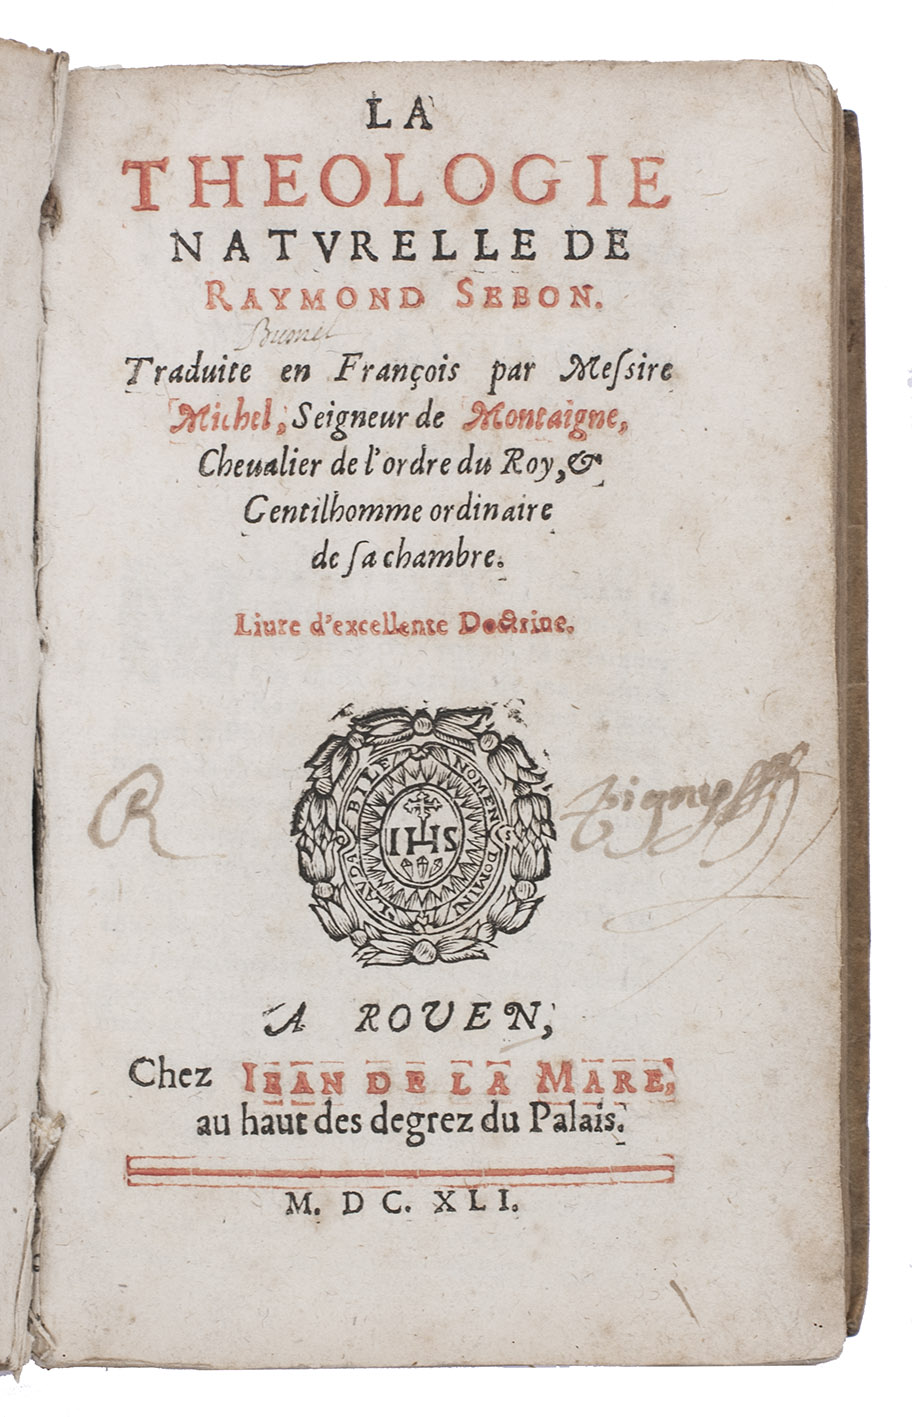 LA
THEOLOGIE
NATVRELLE DE
RAYMOND SEBON.
Traduite en François par Meſsire
Michel, Seigneur de Montaigne,
Cheualier de l'ordre du Roy, &
Gentilhomme ordinaire
de ſa chambre.
Liure d'excellente Doctrine.
LAVDABILE NOMEN DOMINI
IHS
R
A ROVEN,
Chez IEAN DE LA MARE,
au haut des degrez du Palais.
M. DC. XLI.